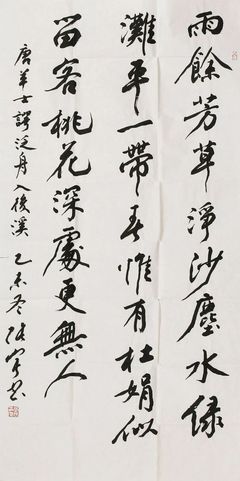 雨餘芳草淨沙塵水绿
灘平一帶春惟有杜娟似
留客桃花深處更無人
唐羊士諤泛舟入後溪 乙未冬